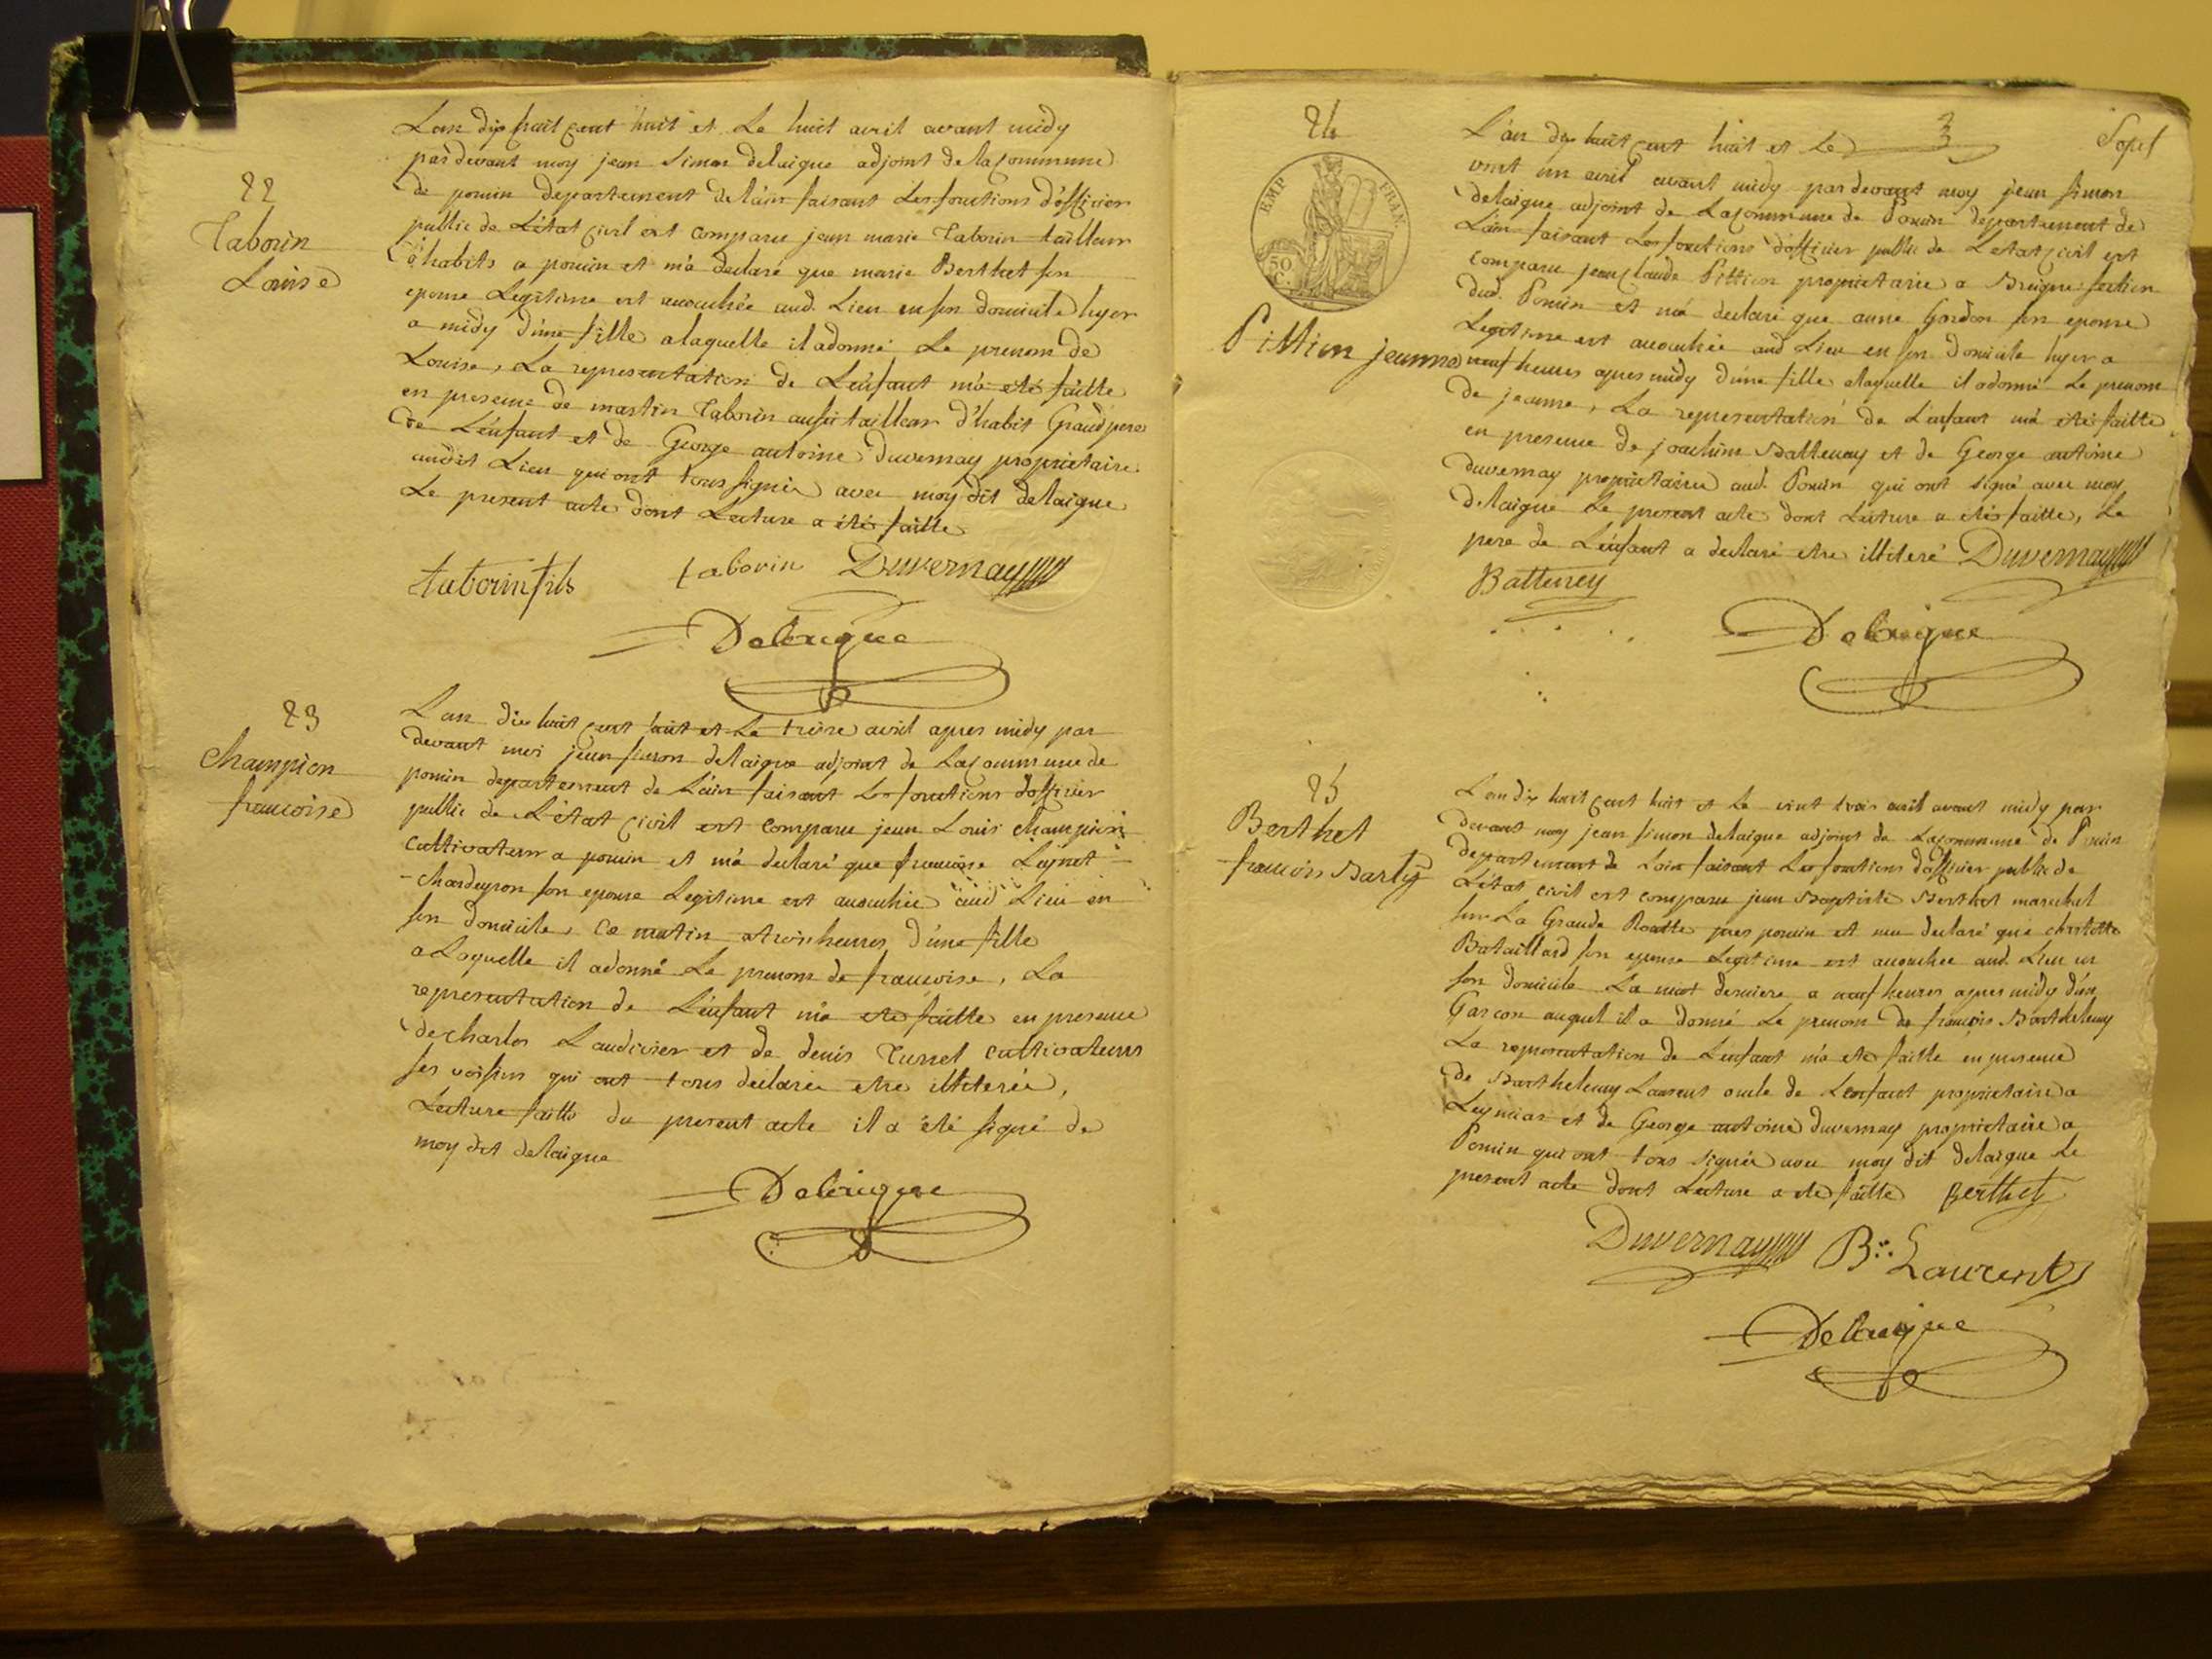 22
Taborin
Louise
L'an dix huit cent huit et le huit avril avant midy
par devant moy jean simon delaigue adjoint de la commune
de pouin departement de l'ain faisant les fonctions d'officier
public de L'état civil est comparu jean marie Taborin tailleur
d'habits a pouin et m'a declaré que marie Berthet son
epouse Legitime est accouchée aud. Lieu en son domicile hyer
a midy d'une fille a laquelle il a donné Le prenom de
Louise, La representation de L'enfant m'a été faitte
en presence de martin Taborin aussi tailleur d'habit Grand pere
de L'enfant et de George antoine Duvernay proprietaire
audit Lieu qui ont tous signés avec moy dit delaigue
Le present acte dont Lecture a été faitte
taborin fils taborin Duvernay
Delaigue
23
Champion
francoise
L'an dix huit cent huit et Le treise avril apres midy par
devant moi jean simon delaigue adjoint de La commune de
pouin departement de L'ain faisant Les fonctions d'officier
public de L'état civil est comparu jean Louis Champion
Cultivateur a pouin et m'a declaré que francoise Luynet
- Chardeyron son epouse Legitime est accouchée aud Lieu en
son domicile, Ce matin a trois heures d'une fille
a Laquelle il a donné Le prenom de francoise, La
representation de L'enfant m'a eté faitte en presence
de Charles Laudivier et de denis Turrel cultivateurs
ses voisins qui ont tous déclarés etre illiterés,
Lecture faitte du present acte il a été signé de
moy dit delaigue
Delaigue
24
3
Sept
EMP. FRAN.
50 C.
Pittion jeanne
L'an dix huit cent huit et Le
vint un avril avant midy par devant moy jean simon
delaigue adjoint de La commune de Pouin departement de
L'ain faisant Les fonctions d'officier public de L'etat civil est
comparu jean Claude Pittion proprietaire a Breigne section
dud. Pouin et m'a declaré que anne Gordon son epouse
Legitime est accouchée aud Lieu en son domicile hyer a
neuf heures apres midy d'une fille a laquelle il a donné Le prenom
de jeanne, La representation de L'enfant m'a été faitte
en presence de joachim Battenay et de George antoine
Duvernay proprietaires aud. Pouin qui ont signé avec moy
delaigue Le present acte dont Lecture a été faitte, Le
pere de L'enfant a declaré etre illiteré Duvernay
Batteney
Delaigue
25
Berthet
francois Barthy
L'an dix huit cent huit et le vint trois avril avant midy par
devant moy jean simon delaigue adjoint de La commune de Pouin
departement de L'ain faisant Les fonctions d'officier public de
L'état civil est comparu jean Baptiste Berthet marechal
sur La Grande Routte pres pouin et m'a declaré que charlotte
Bataillard son epouse Legitime est accouchée aud. Lieu en
son domicile La nuit derniere a neuf heures apres midy d'un
Garcon auquel il a donné Le prenom de francois Barthelemy
La representation de L'enfant m'a eté faitte en presence
de Barthelemy Laurent oncle de L'enfant proprietaire a
Leymiar et de George antoine duvernay proprietaire a
Pouin qui ont tous signés avec moy dit delaigue Le
present acte dont Lecture a eté faitte Berthet
Duvernay B.: Laurent
Delaigue